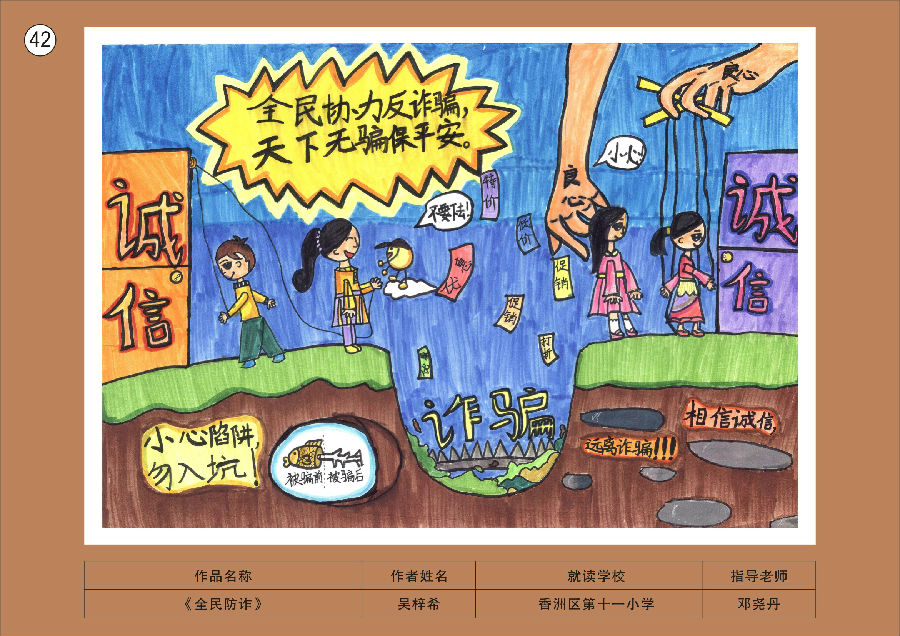 42
全民协力反诈骗,
天下无骗保平安。
良心
良心
小心!
不要去!
特价
低价
惊
促销
促销
打折
诚
信
诚
信
诈骗
小心陷阱,
勿入坑!
被骗前
被骗后
相信诚信,
远离诈骗!!!
作品名称
作者姓名
就读学校
指导老师
《全民防诈》
吴梓希
香洲区第十一小学
邓尧丹